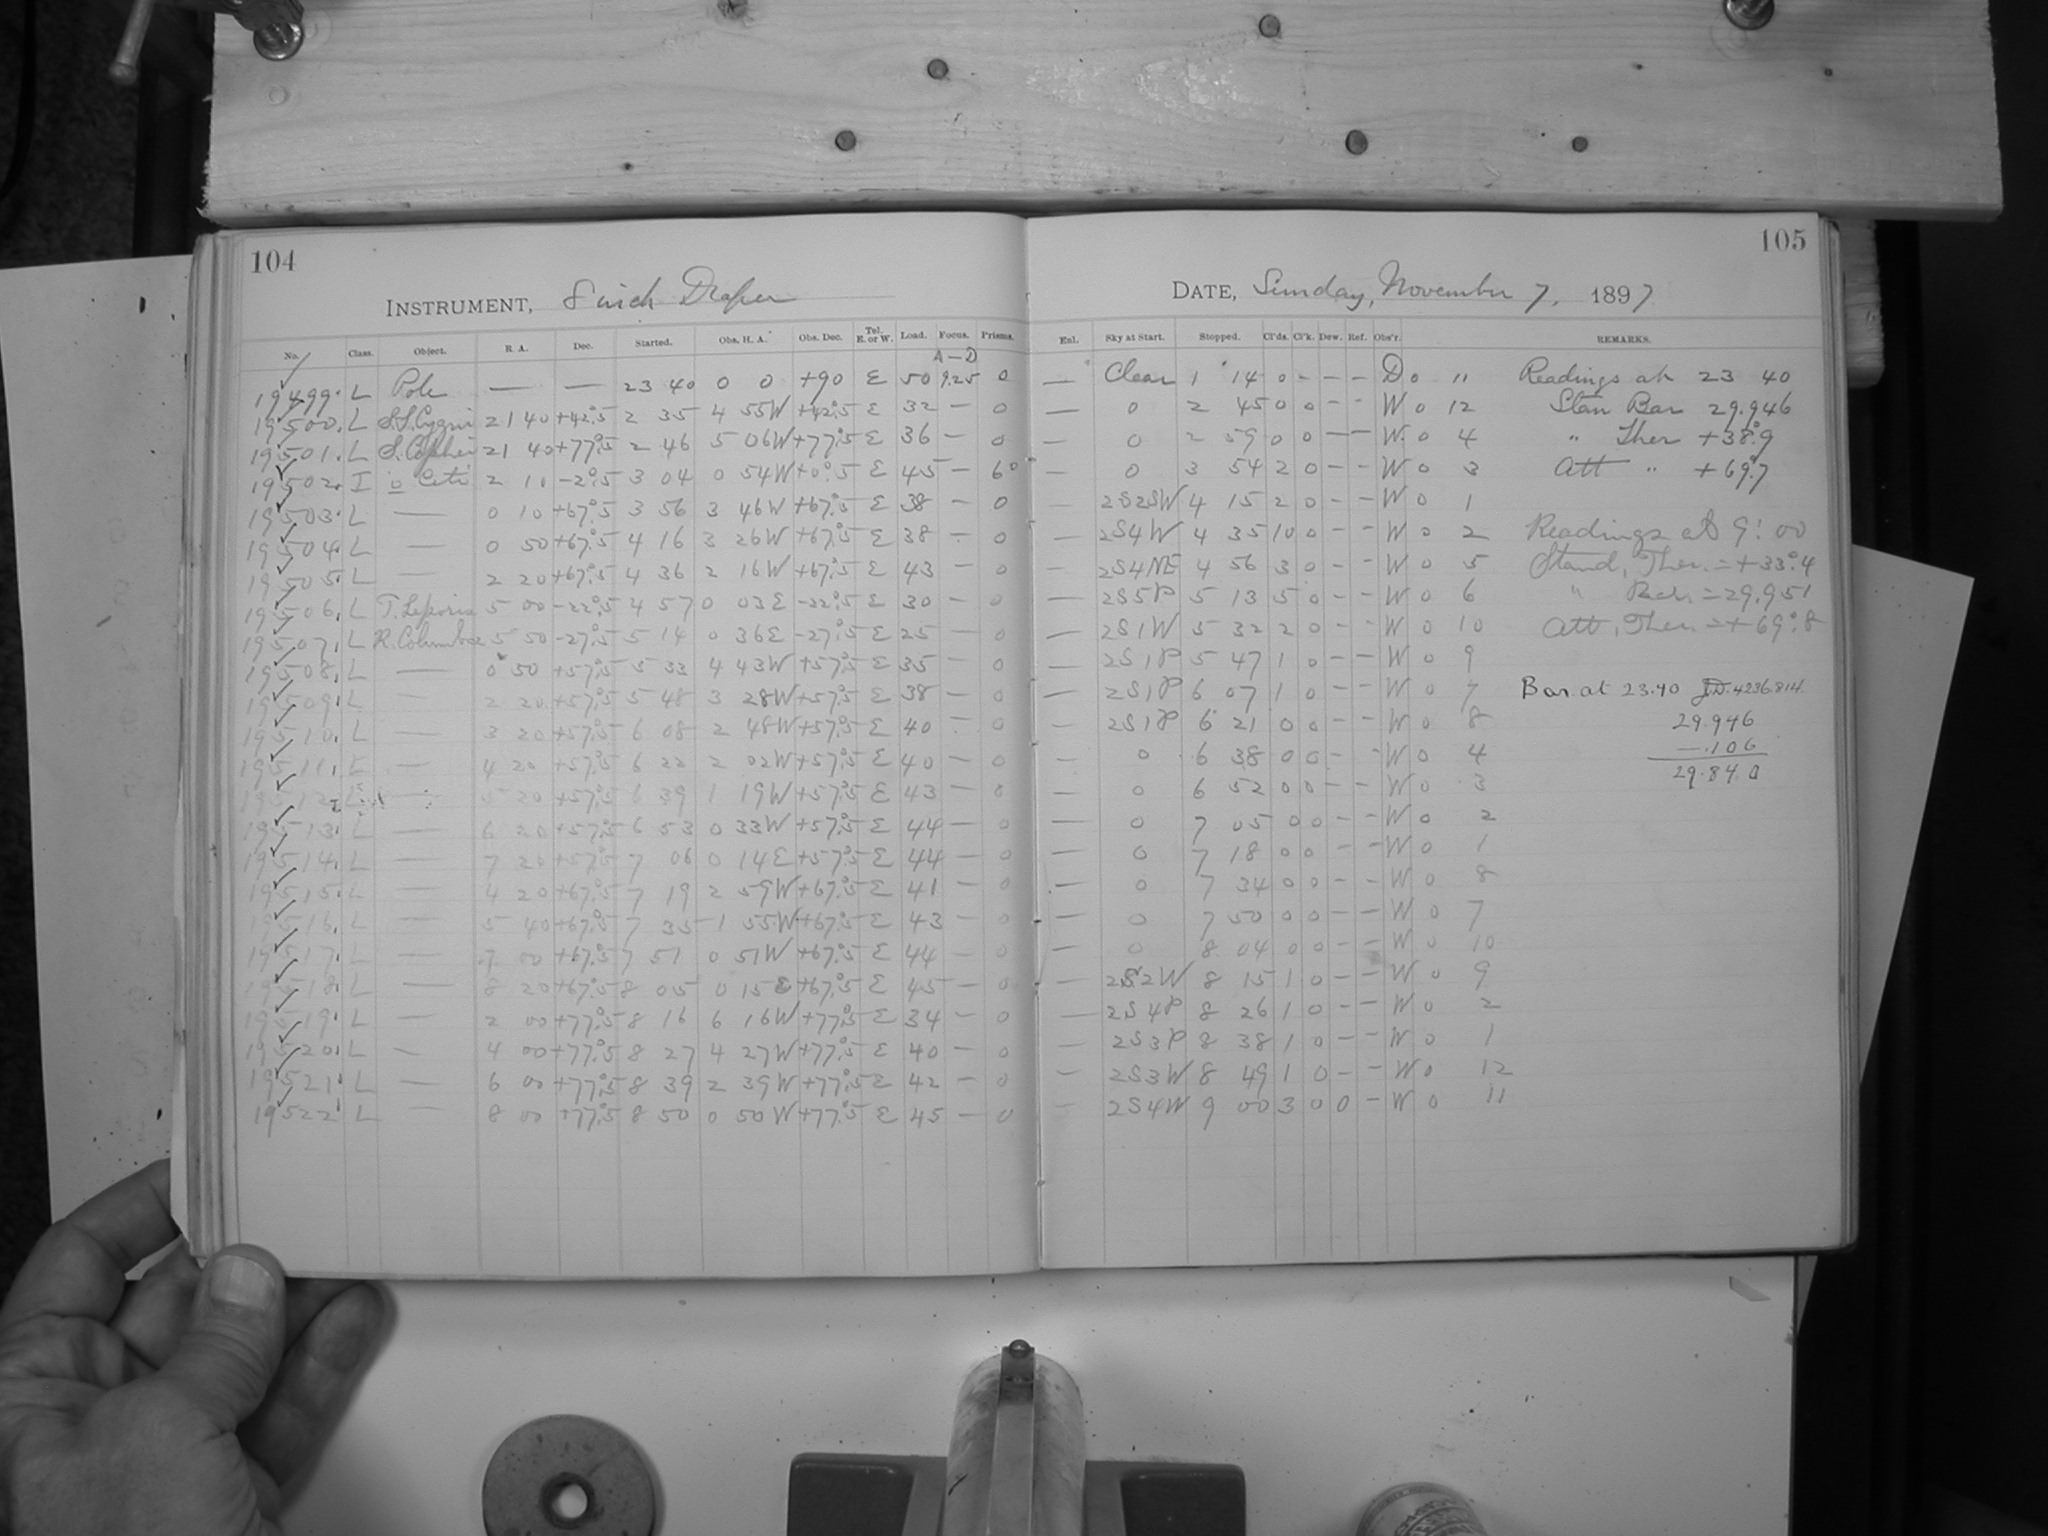 104
INSTRUMENT, 8 inch Draper
No. Class. Object. R. A. Dec. Started. Obs. H. A. Obs. Dec. Tel. E. or W. Load. Focus. Prisms.
A — D
19499. L Pole — — 23 40 0 0 +90 E 50 9.25 0
19500. L S.S. Cygni 21 40 +42°.5 2 35 4 55W +42°.5 E 32 — 0
19501. L S. Cephei 21 40 +77°.5 2 46 5 06W +77°.5 E 36 — 0
19502. I o Ceti 2 10 -2°.5 3 04 0 54W +0°.5 E 45 — 6° 
19503. L — 0 10 +67°.5 3 56 3 46W +67°.5 E 38 — 0
19504. L — 0 50 +67°.5 4 16 3 26W +67°.5 E 38 — 0
19505. L — 2 20 +67°.5 4 36 2 16W +67°.5 E 43 — 0
19506. L T. Leporis 5 00 -22°.5 4 57 0 03E -22°.5 E 30 — 0
19507. L R. Columbae 5 50 -27°.5 5 14 0 36E -27°.5 E 25 — 0
19508. L — 0 50 +57°.5 5 33 4 43W +57°.5 E 35 — 0
19509. L — 2 20 +57°.5 5 48 3 28W +57°.5 E 38 — 0
19510. L — 3 20 +57°.5 6 08 2 48W +57°.5 E 40 — 0
19511. L — 4 20 +57°.5 6 22 2 02W +57°.5 E 40 — 0
19512. L — 5 20 +57°.5 6 39 1 19W +57°.5 E 43 — 0
19513. L — 6 20 +57°.5 6 53 0 33W +57°.5 E 44 — 0
19514. L — 7 20 +57°.5 7 06 0 14E +57°.5 E 44 — 0
19515. L — 4 20 +67°.5 7 19 2 59W +67°.5 E 41 — 0
19516. L — 5 40 +67°.5 7 35 1 55W +67°.5 E 43 — 0
19517. L — 7 00 +67°.5 7 51 0 51W +67°.5 E 44 — 0
19518. L — 8 20 +67°.5 8 05 0 15E +67°.5 E 45 — 0
19519. L — 2 00 +77°.5 8 16 6 16W +77°.5 E 34 — 0
19520. L — 4 00 +77°.5 8 27 4 27W +77°.5 E 40 — 0
19521. L — 6 00 +77°.5 8 39 2 39W +77°.5 E 42 — 0
19522. L — 8 00 +77°.5 8 50 0 50W +77°.5 E 45 — 0
105
DATE, Sunday, November 7, 1897
Enl. Sky at Start. Stopped. Cl'ds. Cl'k. Dew. Ref. Obs'r. REMARKS.
— Clear 1 14 0 - - - D 0 11 Readings at 23 40
— 0 2 45 0 0 - - W 0 12 Stan Bar 29.946
— 0 2 59 0 0 - - W. 0 4 " Ther +38°.9
— 0 3 54 2 0 - - W 0 3 Att " +69°.7
— 2S2SW 4 15 2 0 - - W 0 1
— 2S4W 4 35 10 0 - - W 0 2 Readings at 9: 00
— 2S4NE 4 56 3 0 - - W 0 5 Stand, Ther. = +33°.4
— 2S5P 5 13 5 0 - - W 0 6 " Bar. = 29.951
— 2S1W 5 32 2 0 - - W 0 10 Att, Ther. = +69°.8
— 2S1P 5 47 1 0 - - W 0 9
— 2S1P 6 07 1 0 - - W 0 7 Bar. at 23.40 J.D. 4236.814
— 2S1P 6 21 0 0 - - W 0 8 29.946
— 0 6 38 0 0 - - W 0 4 -.106
— 0 6 52 0 0 - - W 0 3 29.840
— 0 7 05 0 0 - - W 0 2
— 0 7 18 0 0 - - W 0 1
— 0 7 34 0 0 - - W 0 8
— 0 7 50 0 0 - - W 0 7
— 0 8 04 0 0 - - W 0 10
— 2S2W 8 15 1 0 - - W 0 9
— 2S4P 8 26 1 0 - - W 0 2
— 2S3P 8 38 1 0 - - W 0 1
— 2S3W 8 49 1 0 - - W 0 12
— 2S4W 9 00 3 0 0 - W 0 11